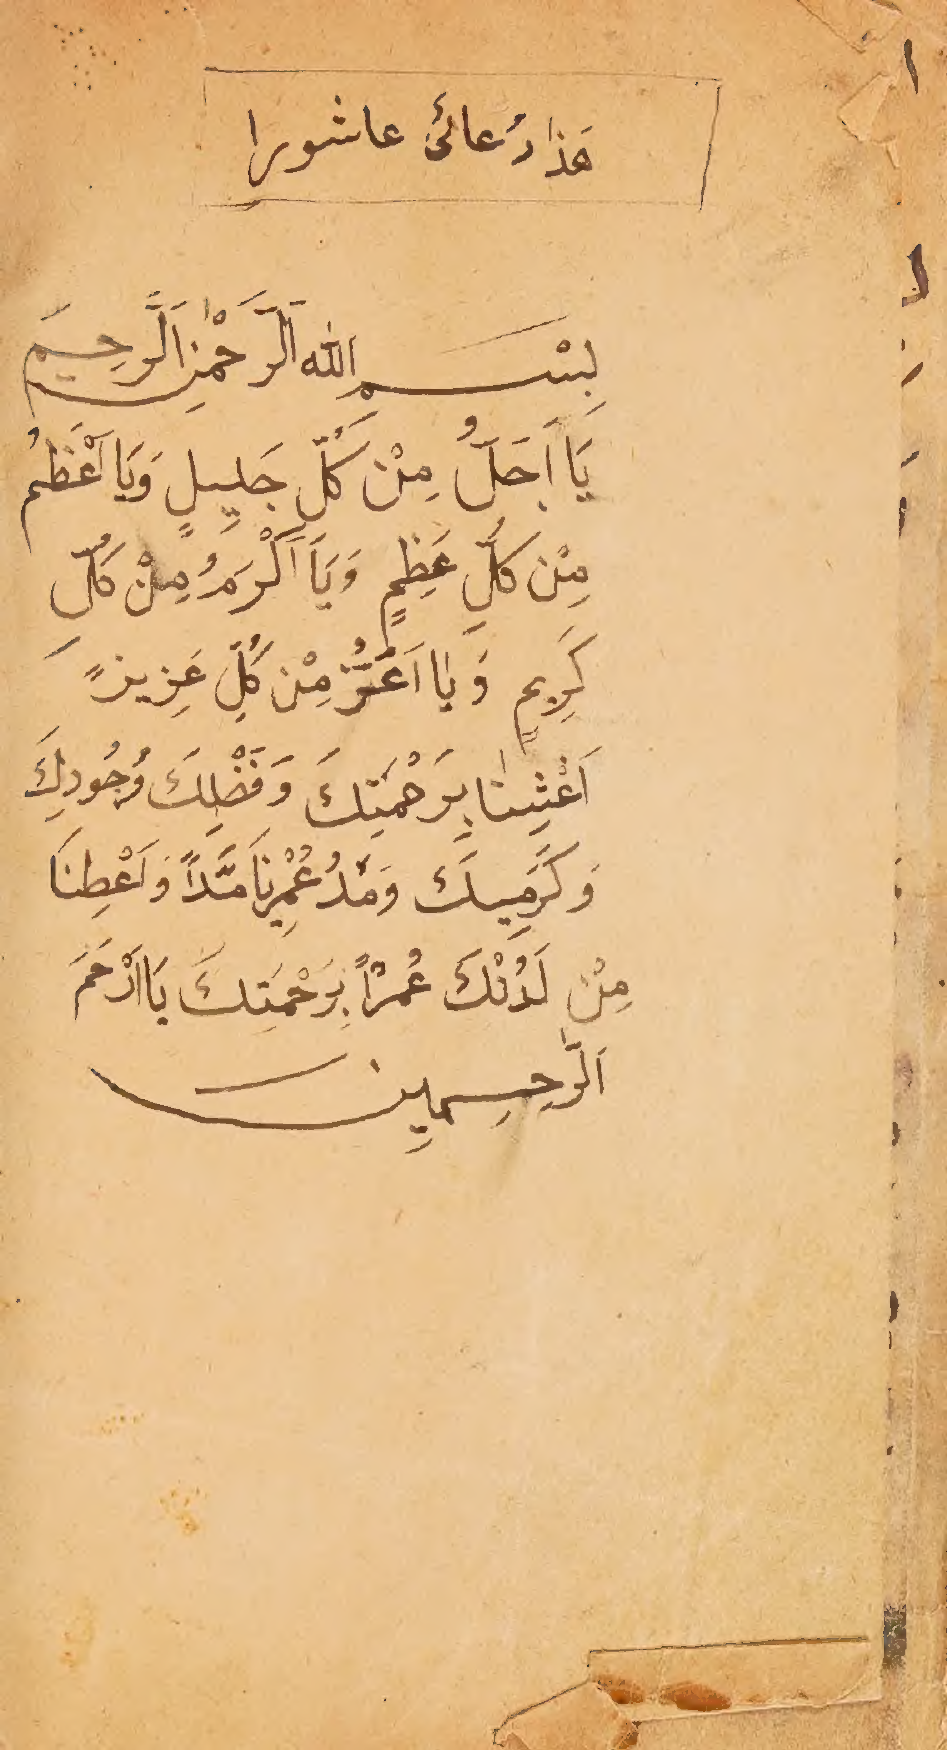 هَذَا دُعائ عاشورا
بِسْمِ اللهِ الَّرَحْمٰنِ الَّرحِيمِ
يَا اَجَلُّ مِنْ كُلِّ جَلِيلٍ وَيَا اَعْظَمُ
مِنْ كُلِّ عَظِمٍ وَيَا اَكْرَمُ مِنْ كُلِّ
كَرِيمٍ وَيا اَعَزُّ مِنْ كُلِّ عَزِيزٍ
اَغْثِنا بِرَحْمَتِكَ وَفَضْلِكَ وَجُودِكَ
وَكَرَمِيكَ وَمُدْ عُمْرِنَا مَدّاً وَاَعْطِنَا
مِنْ لَدُنْكَ عُمْراً بِرَحْمَتِكَ يَا اَرْحَمَ
الَّرحِمِينَ